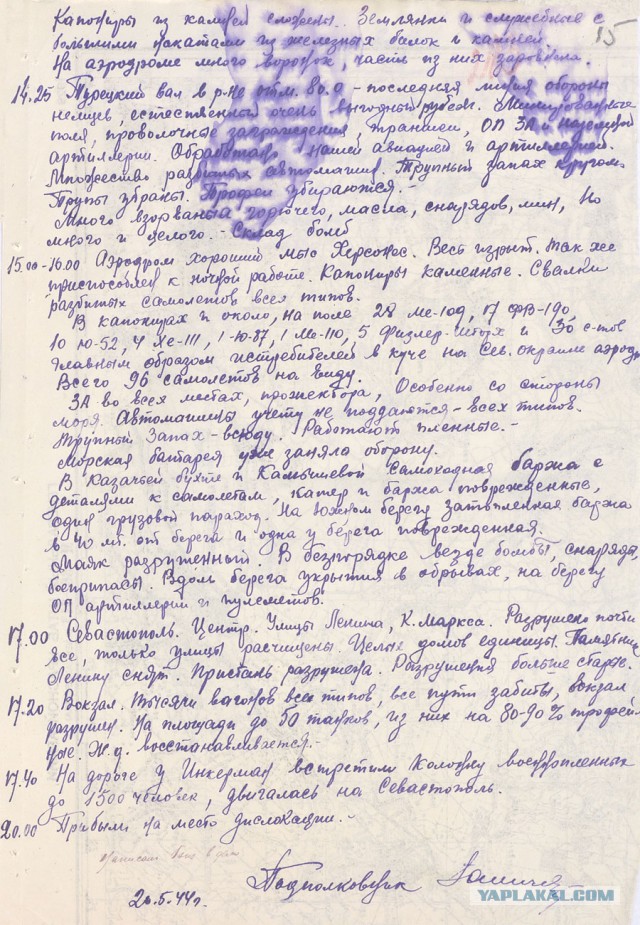 15
Капониры из камней сложены. Землянки и служебные с
большими накатами из железных балок и камней.
На аэродроме много воронок, часть из них заровнена.
14.25 Турецкий вал в р-не отм. 80.0 - последняя линия обороны
немцев, естественный очень выгодный рубеж. Минированные
поля, проволочные заграждения, траншеи, ОП ЗА и наземной
артиллерии. Обработано нашей авиацией и артиллерией.
Множество разбитых автомашин. Трупный запах кругом.
Трупы убраны. Трофеи убираются.-
Много взорванна горючего, масла, снарядов, мин, но
много и целого. - Склад бомб
15.00-16.00 Аэродром хороший мыс Херсонес. Весь изрыт. Так же
приспособлен к ночной работе. Капониры каменные. Свалки
разбитых самолетов всех типов.
В капонирах и около, на поле 28 Ме-109, 17 ФВ-190,
10 Ю-52, 4 Хе-111, 1-Ю-87, 1 Ме-110, 5 Физлер-Шторх и 30 с-тов
главным образом истребителей в куче на сев. окраине аэродр
Всего 96 самолетов на виду.
ЗА во всех местах, прожектора, Особенно со стороны
моря. Автомашины учету не поддаются - всех типов.
Трупный запах - всюду. Работают пленные.-
Морская батарея уже заняла оборону.
В Казачьей бухте и Камышевой самоходная баржа с
деталями к самолетам, катер и баржа поврежденные,
один грузовой пароход. На Южном берегу затопленная баржа
в 40 мт. от берега и одна у берега поврежденная.
Маяк разрушенный. В безпорядке везде бомбы, снаряды,
боеприпасы. Вдоль берега укрытия в обрывах, на берегу
ОП артиллерии и пулеметов.
17.00 Севастополь. Центр. Улицы Ленина, К. Маркса. Разрушено почти
все, только улицы расчищены. Целых домов единицы. Памятник
Ленину снят. Пристань разрушена. Разрушения больше старые.
17.20 Вокзал. Тысячи вагонов всех типов, все пути забиты, вокзал
разрушен. На площади до 50 танков, из них на 80-90% трофей-
ные. Ж.д. восстанавливается.-
17.40 На дороге у Инкерман встретили колонну военнопленных
до 1500 человек, двигалась на Севастополь.
20.00 Прибыли на место дислокации.-
20.5.44г.
Подполковник
YAPLAKAL.COM